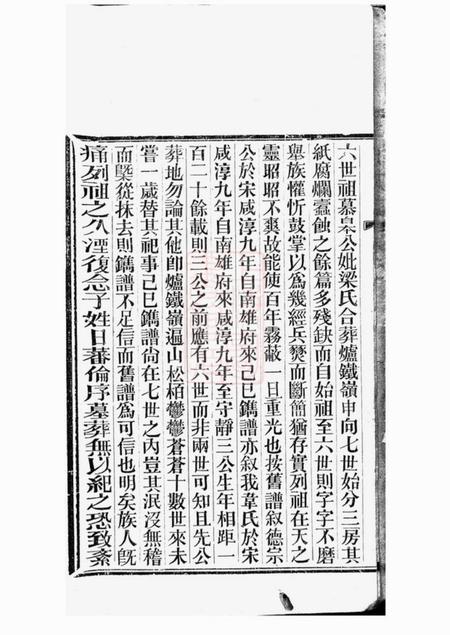 六世祖慕臯公妣梁氏合葬爐鐵嶺申向七世始分三房其
紙腐爛蠧蝕之餘篇多殘缺而自始祖至六世則字字不磨
舉族懽忻鼓掌以為幾經兵燹而斷簡猶存實列祖在天之
靈昭昭不爽故能使百年霧蔽一旦重光也按舊譜叙德宗
公於宋咸淳九年自南雄府來己巳鐫譜亦叙我韋氏於宋
咸淳九年自南雄府來咸淳九年至守靜三公生年相距一
百二十餘載則三公之前應有六世而非兩世可知且先公
葬地勿論其他卽爐鐵嶺遍山松栢鬱鬱蒼蒼十數世來未
嘗一歲替其祀事己巳鐫譜尙在七世之內豈其泯沒無稽
而曁從抹去則鐫譜不足信而舊譜為可信也明矣族人旣
痛列祖之久湮復念子姓日蕃倫序墓葬無以紀之恐致紊